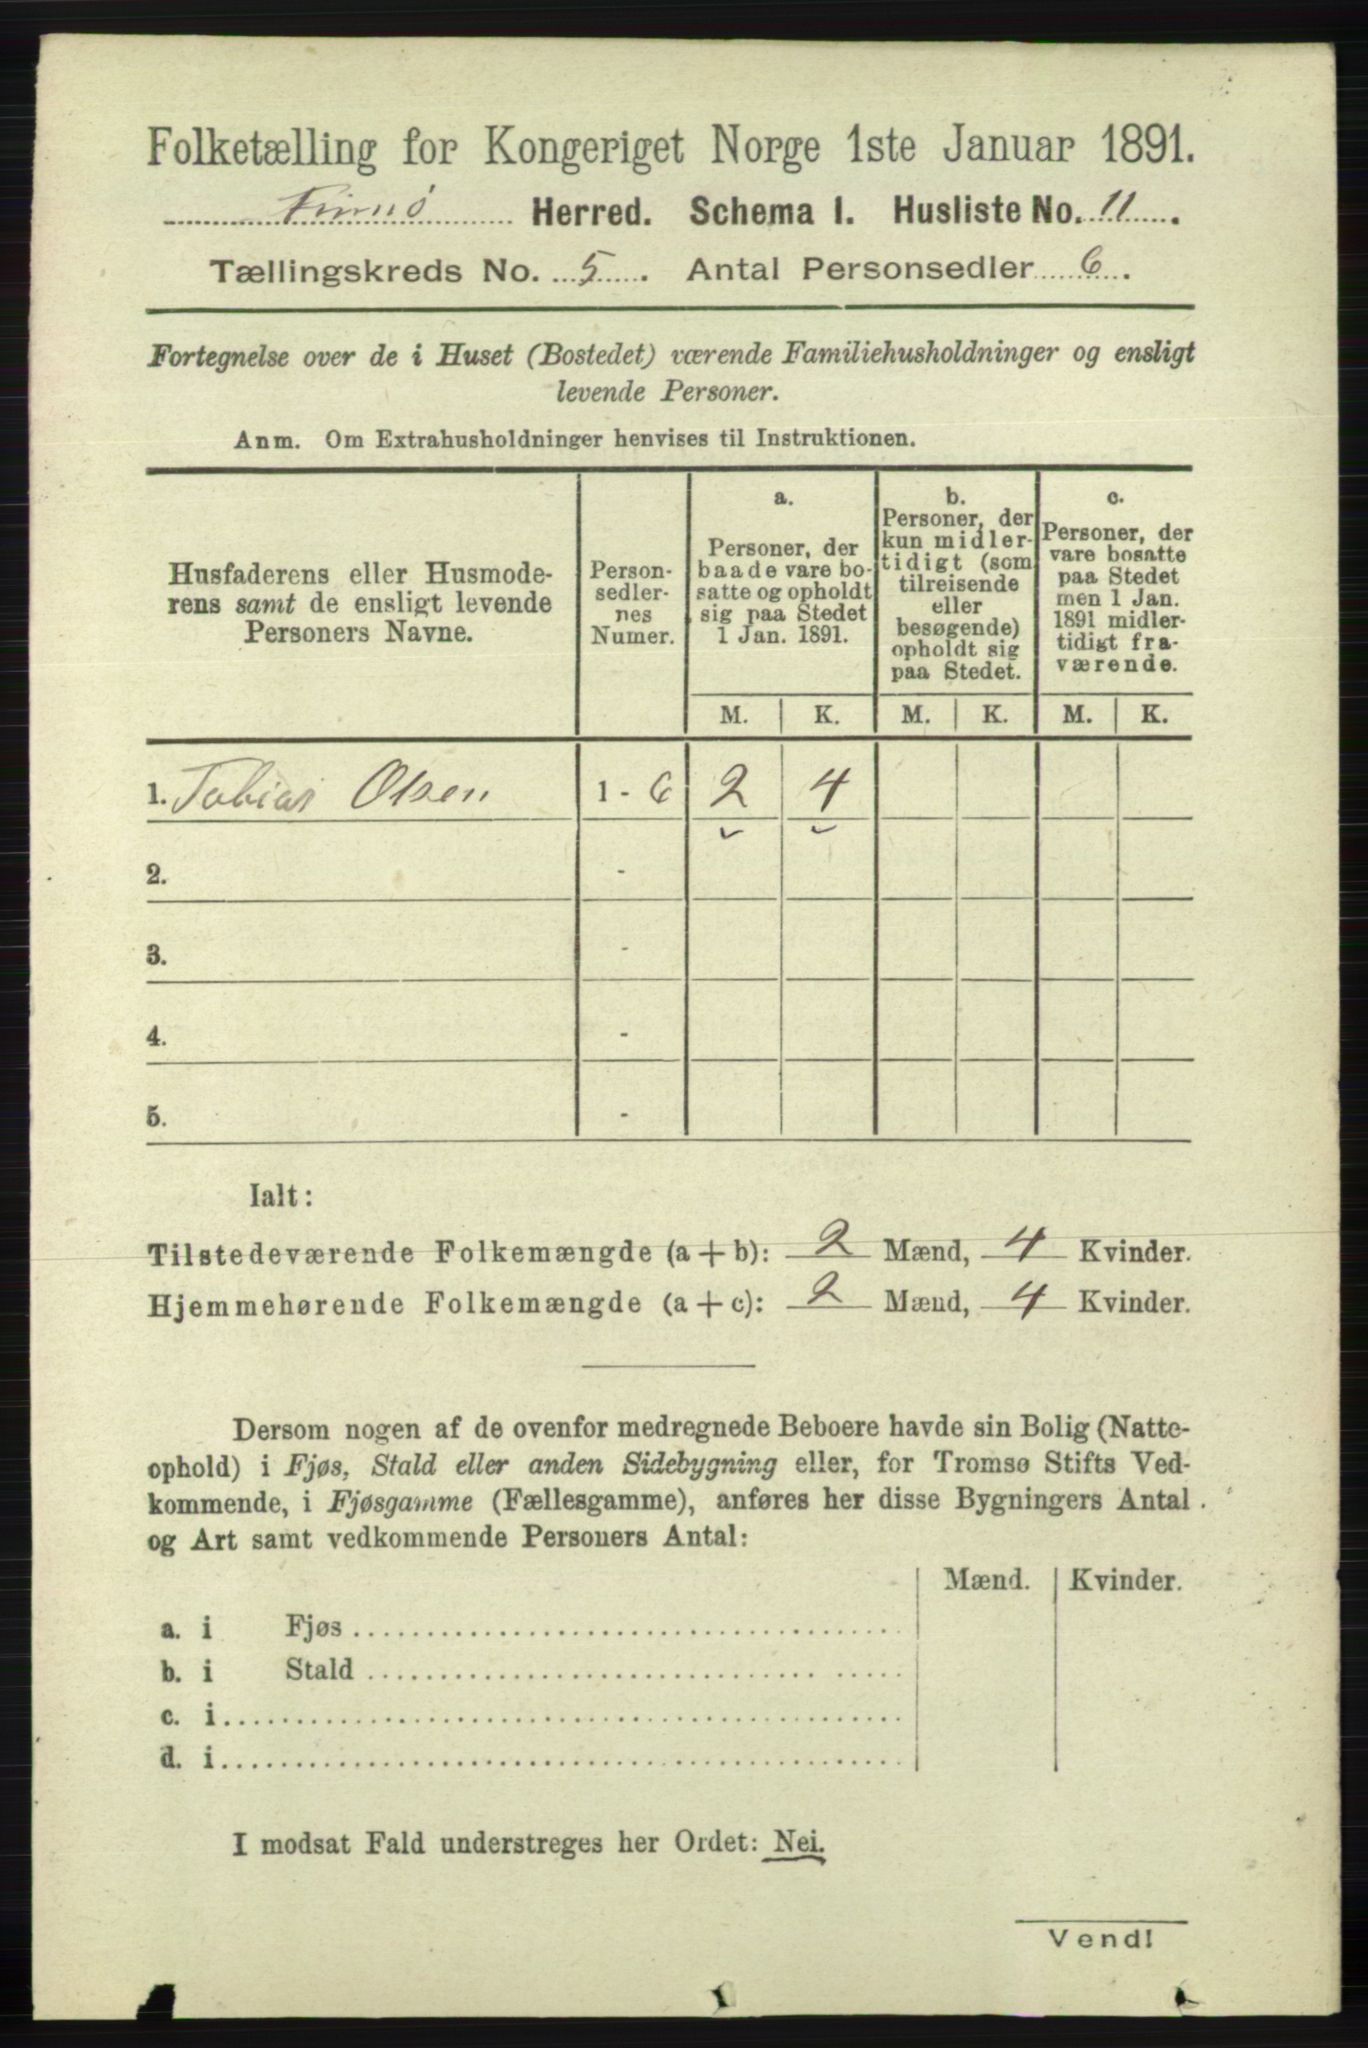 Folketælling for Kongeriget Norge 1ste Januar 1891.
Finnø Herred. Schema I. Husliste No. 11.
Tællingskreds No. 5. Antal Personsedler 6.
Fortegnelse over de i Huset (Bostedet) værende Familiehusholdninger og ensligt
levende Personer.
Anm. Om Extrahusholdninger henvises til Instruktionen.
Husfaderens eller Husmode-
rens samt de ensligt levende
Personers Navne.
Person-
sedler-
nes
Numer.
a.
Personer, der
baade vare bo-
satte og opholdt
sig paa Stedet
1 Jan. 1891.
b.
Personer, der
kun midler-
tidigt (som
tilreisende
eller
besøgende)
opholdt sig
paa Stedet.
c.
Personer, der
vare bosatte
paa Stedet
men 1 Jan.
1891 midler-
tidigt fra-
værende.
M. K. M. K. M. K.
1. Tobias Olsen 1 - 6 2 4
2. -
3. -
4. -
5. -
Ialt:
Tilstedeværende Folkemængde (a + b): 2 Mænd, 4 Kvinder.
Hjemmehørende Folkemængde (a + c): 2 Mænd, 4 Kvinder.
Dersom nogen af de ovenfor medregnede Beboere havde sin Bolig (Natte-
ophold) i Fjøs, Stald eller anden Sidebygning eller, for Tromsø Stifts Ved-
kommende, i Fjøsgamme (Fællesgamme), anføres her disse Bygningers Antal
og Art samt vedkommende Personers Antal:
Mænd. Kvinder.
a. i Fjøs
b. i Stald
c. i
d. i
I modsat Fald understreges her Ordet: Nei.
Vend!